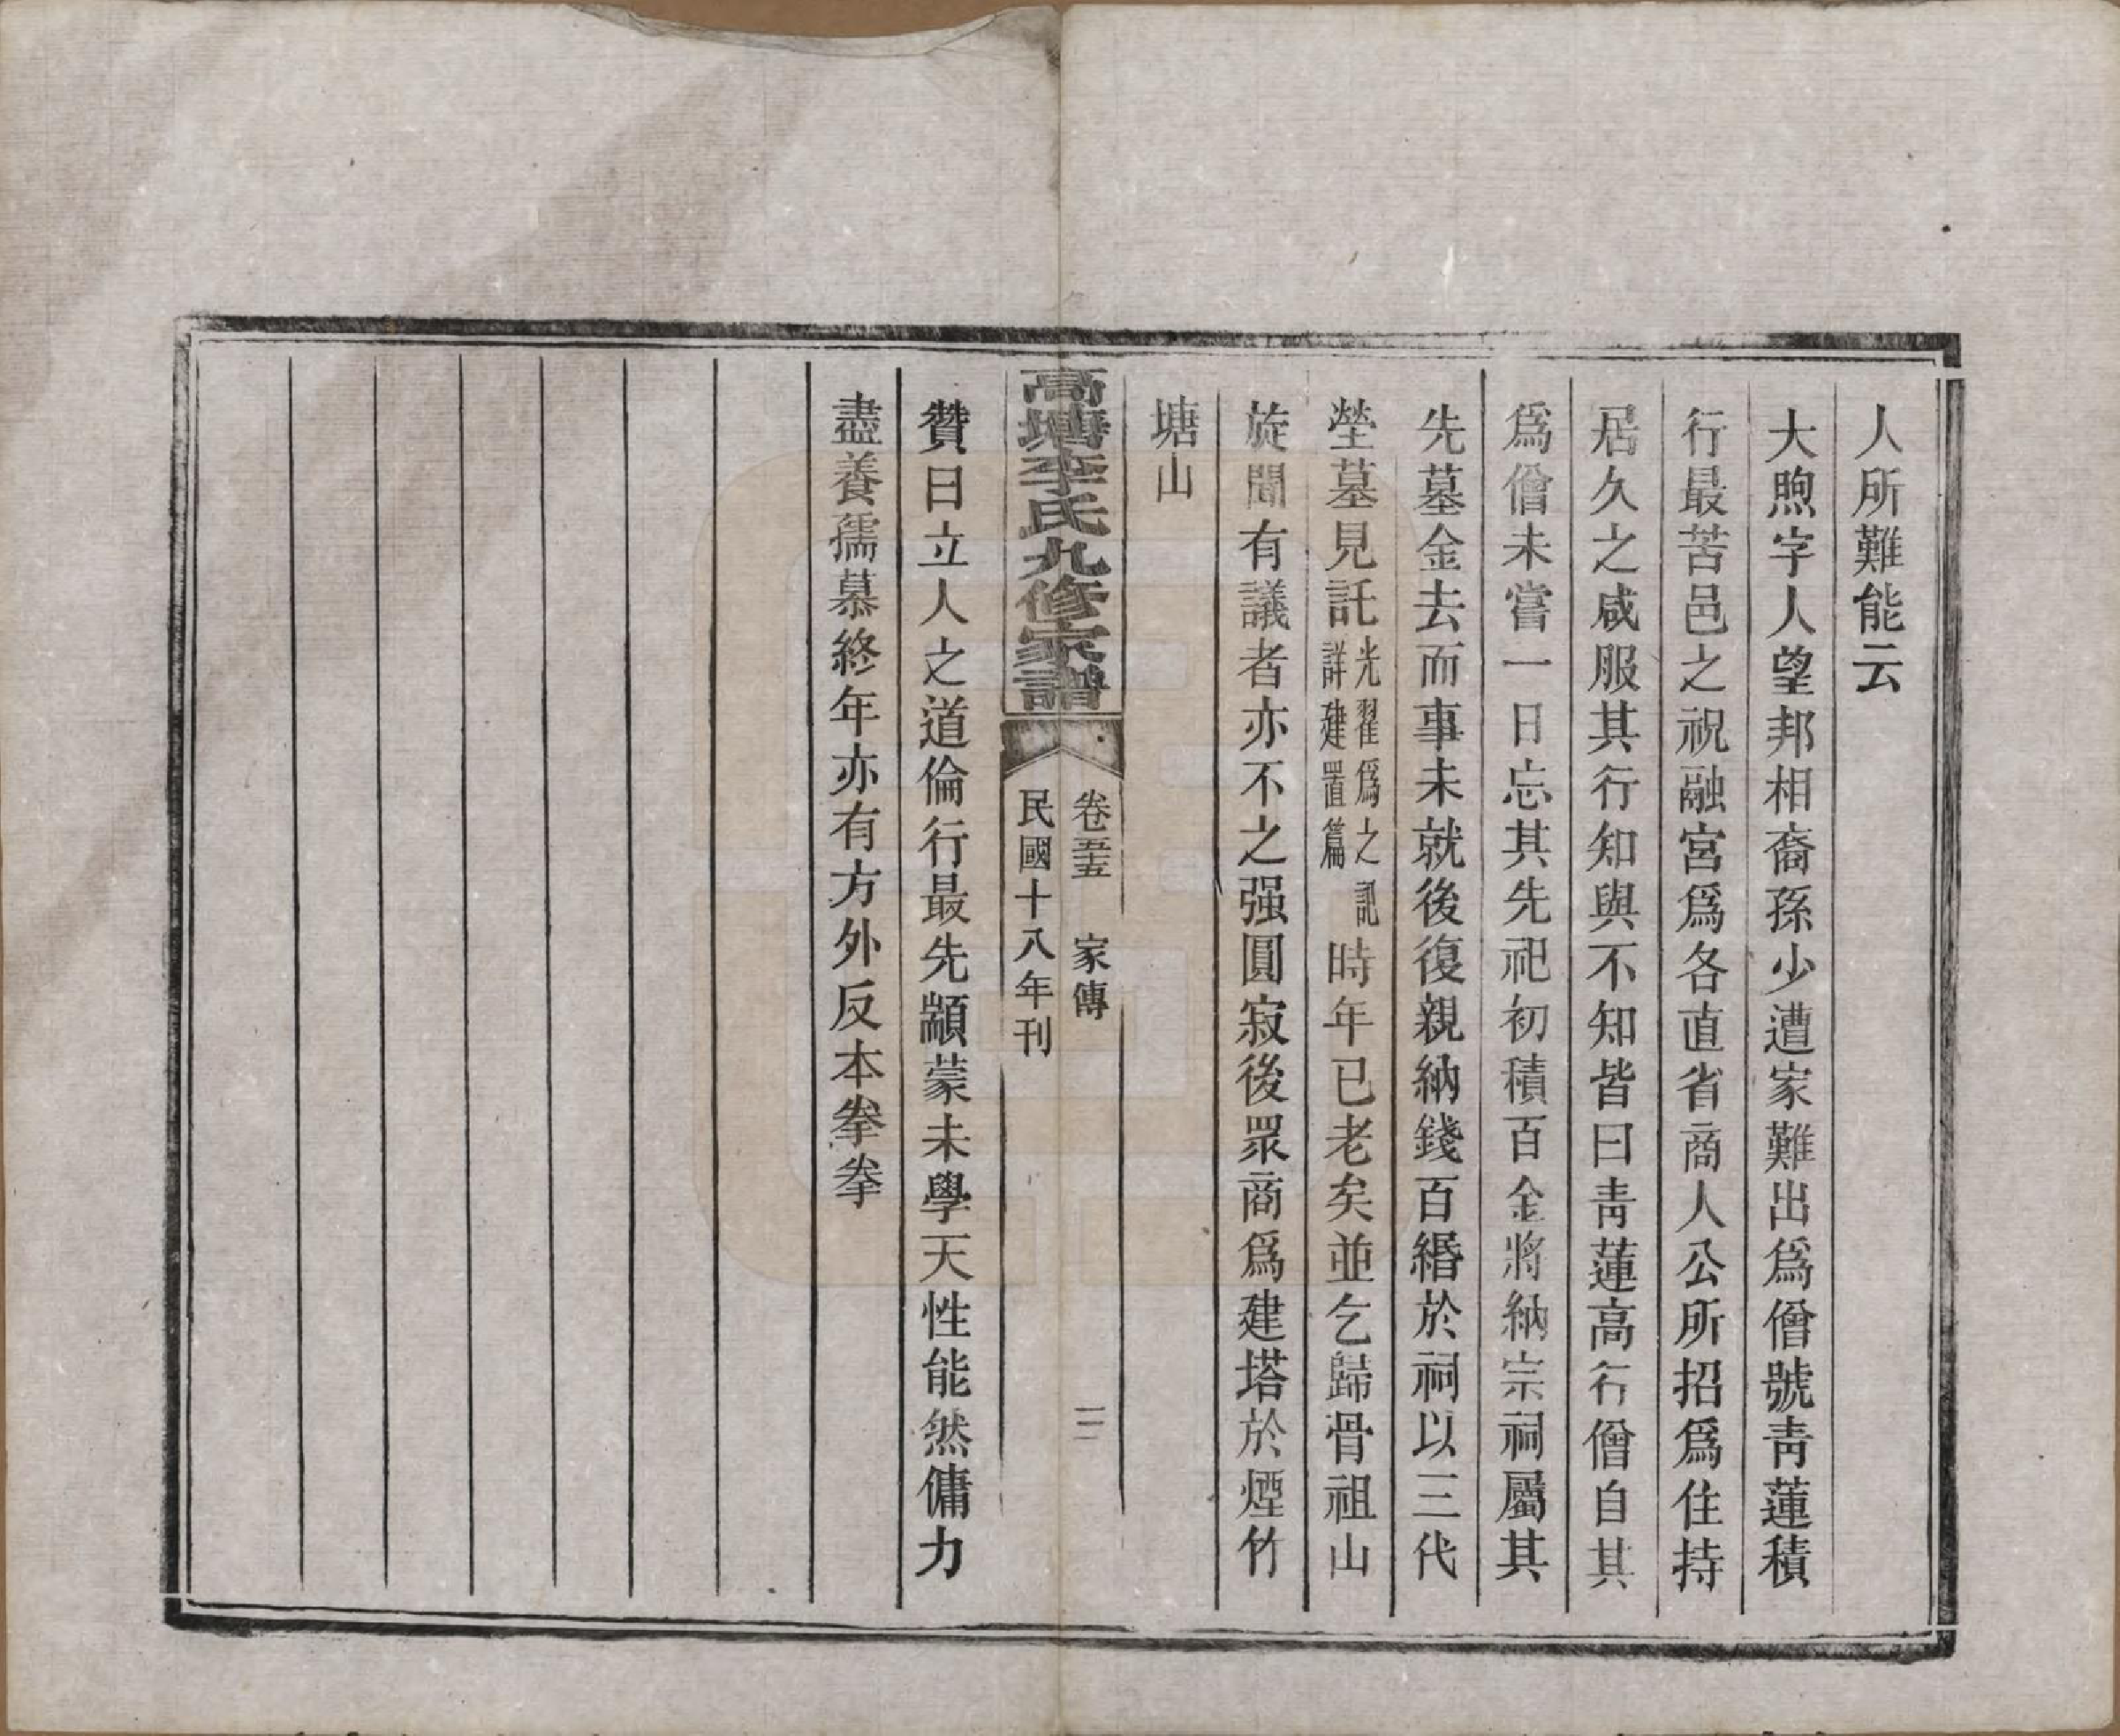 人所難能云
大煦字人望邦相裔孫少遭家難出爲僧號靑蓮積
行最苦邑之祝融宮爲各直省商人公所招爲住持
居久之咸服其行知與不知皆曰靑蓮高行僧自其
爲僧未嘗一日忘其先祀初積百金將納宗祠屬其
先墓金去而事未就後復親納錢百緡於祠以三代
塋墓見託光翟爲之記詳建置篇時年已老矣並乞歸骨祖山
旋聞有議者亦不之强圓寂後眾商爲建塔於煙竹
塘山
高塘李氏九修家譜
卷五十五 家傳
二
民國十八年刊
贊曰立人之道倫行最先顓蒙未學天性能然傭力
盡養孺慕終年亦有方外反本拳拳